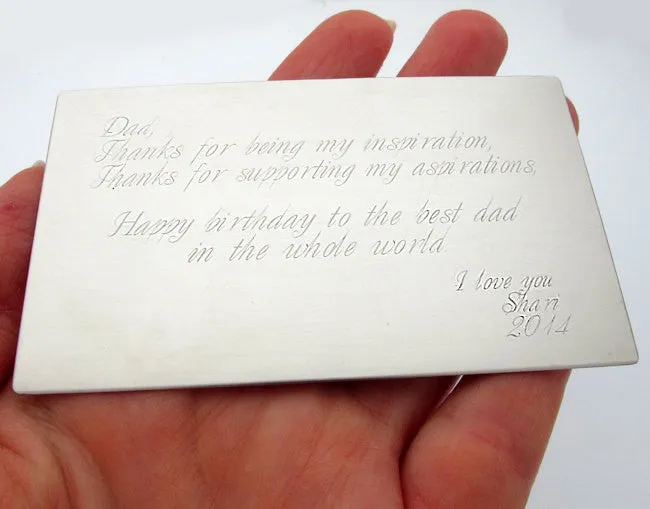 Dad,
Thanks for being my inspiration,
Thanks for supporting my aspirations,
Happy birthday to the best dad
in the whole world
I love you
Shari
2014